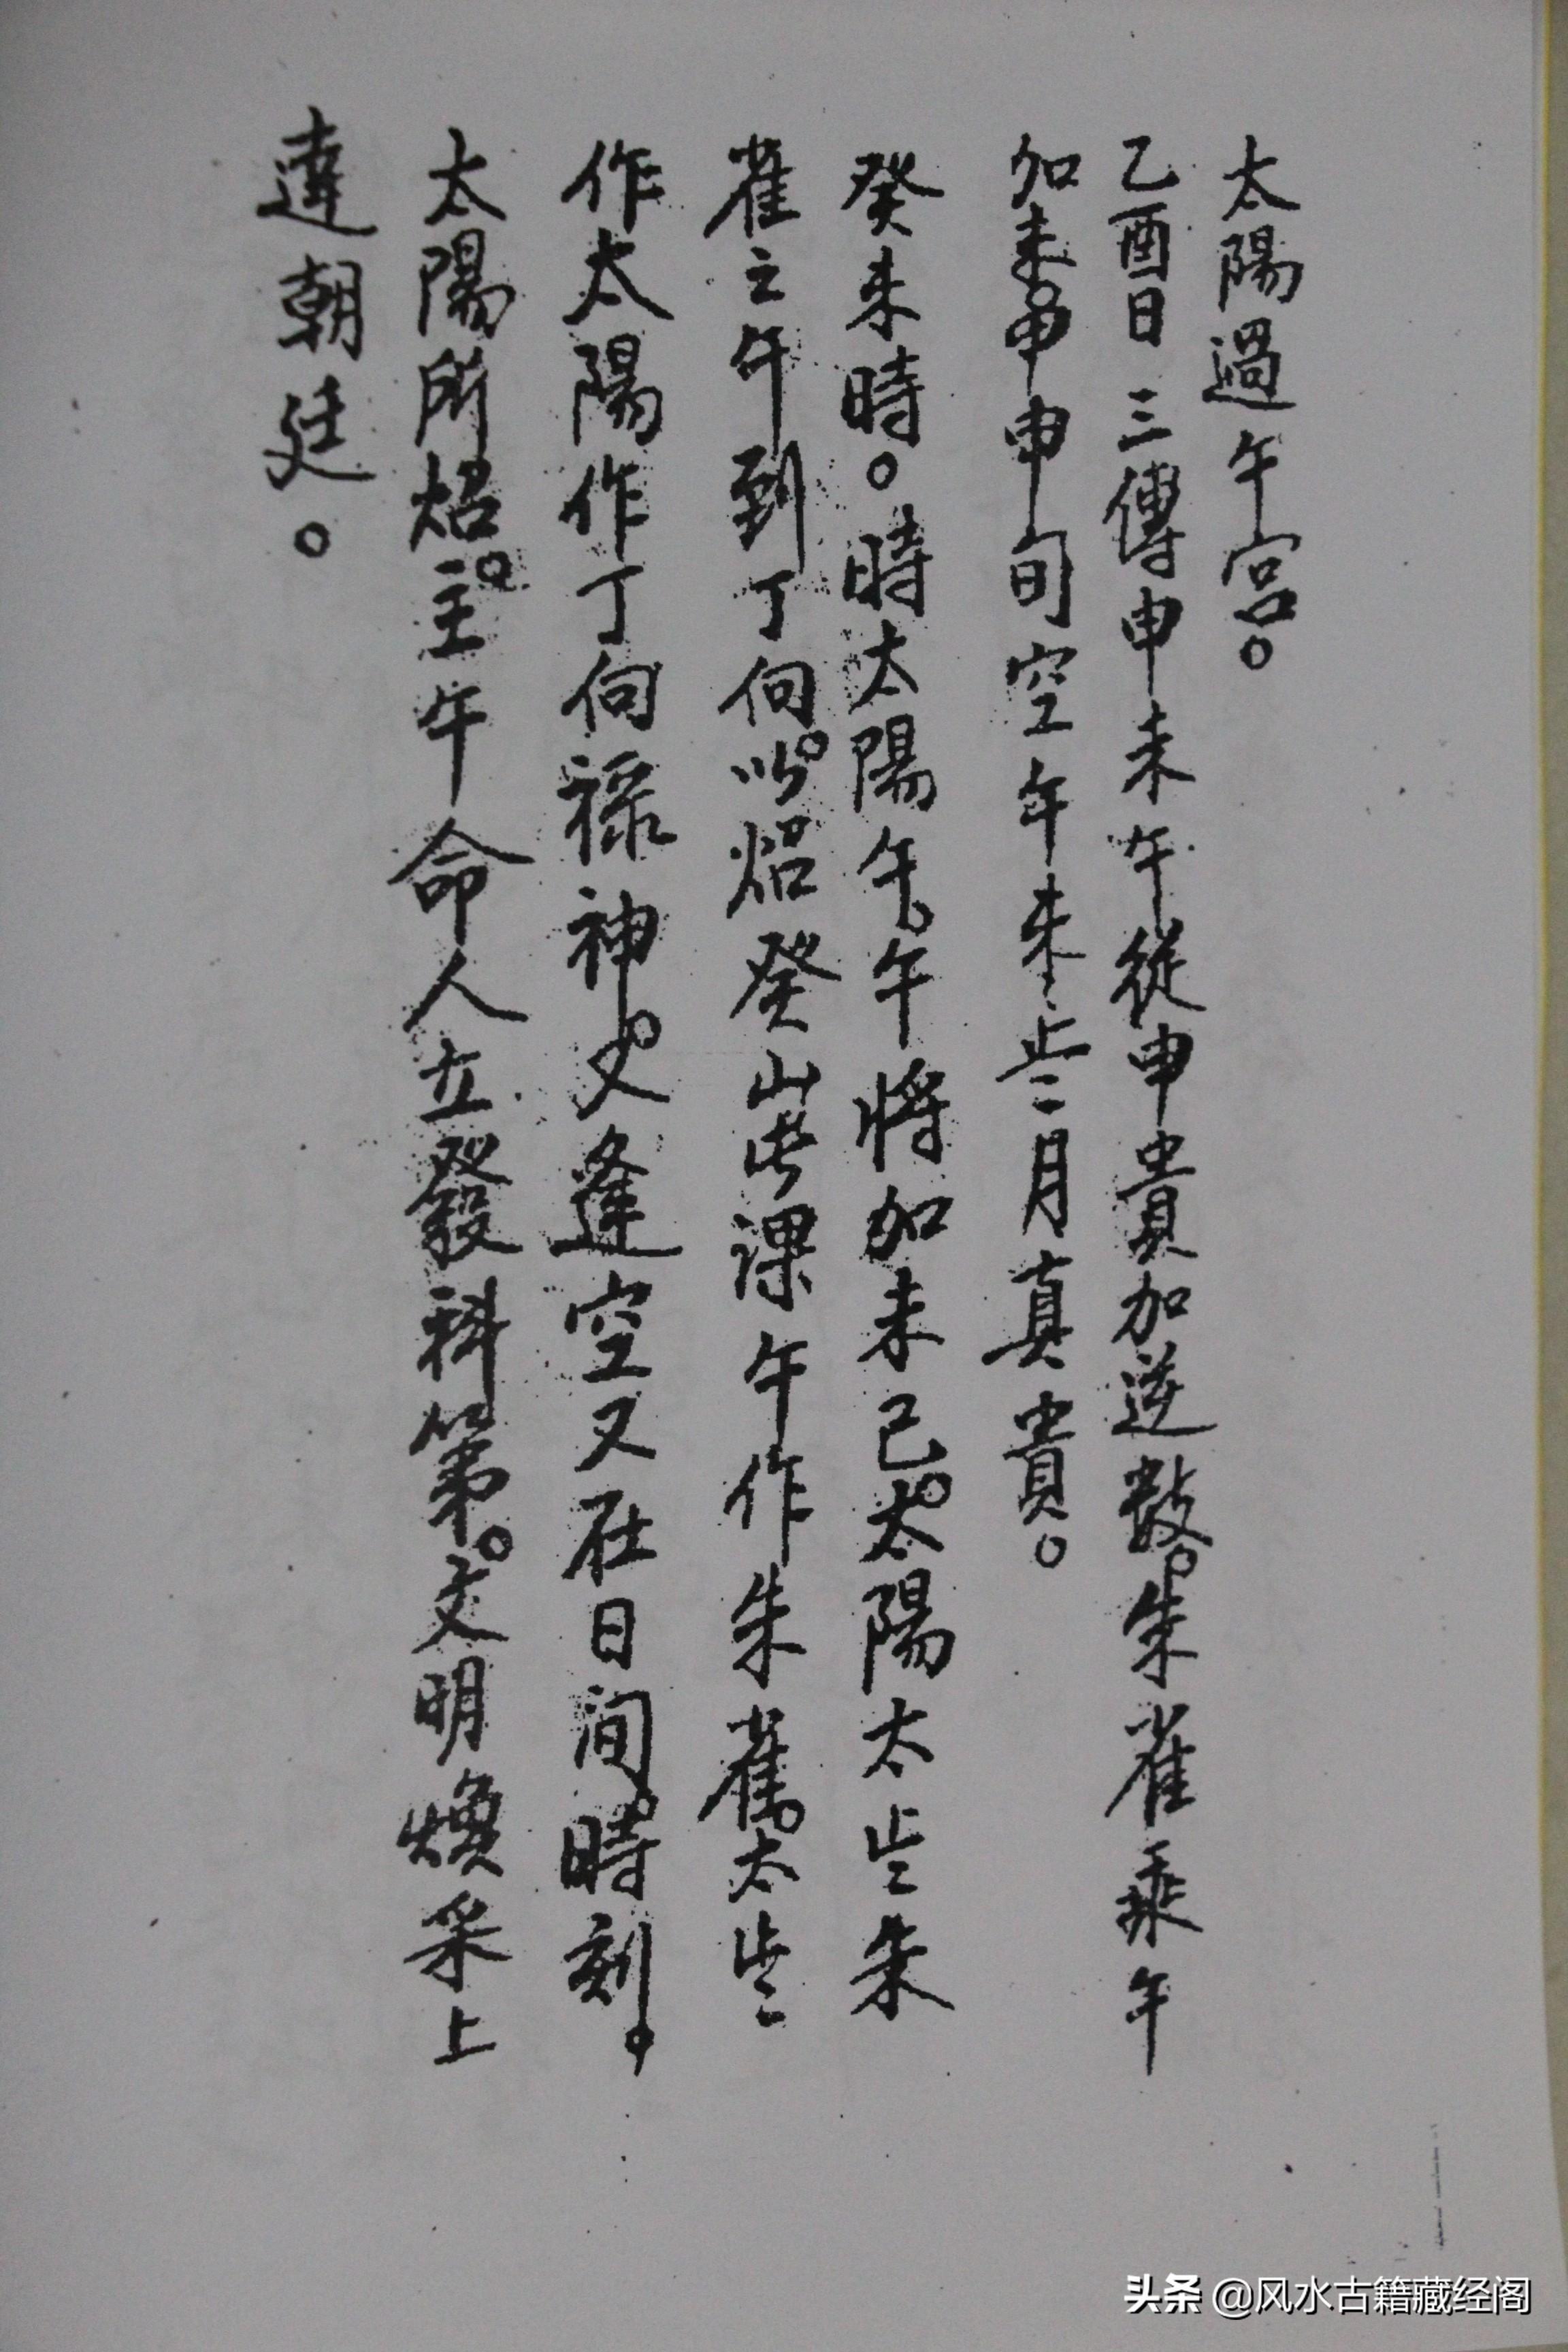 太陽過午宮。
乙酉日三傳申未午從申貴加逆數。朱雀乘午
加未。甲申旬空午未此二月真貴。
癸未時。時太陽午。午將加未已。太陽太歲朱
雀之午到丁向。以炤癸山此課午作朱雀。太歲
作太陽作丁向祿神。又逢空又在日间。時刻。
太陽所炤。主午命人立發科第。文明煥采上
達朝廷。
头条 @风水古籍藏经阁